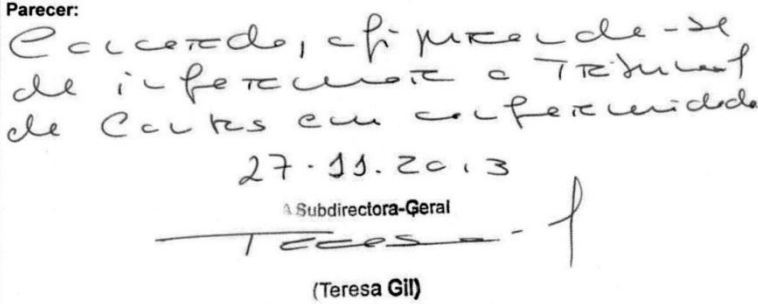 Parecer:
Concordo, afigurando-se
de informar o Tribunal
de Contas em conformidade
27.11.2013
A Subdirectora-Geral
Teresa
(Teresa Gil)